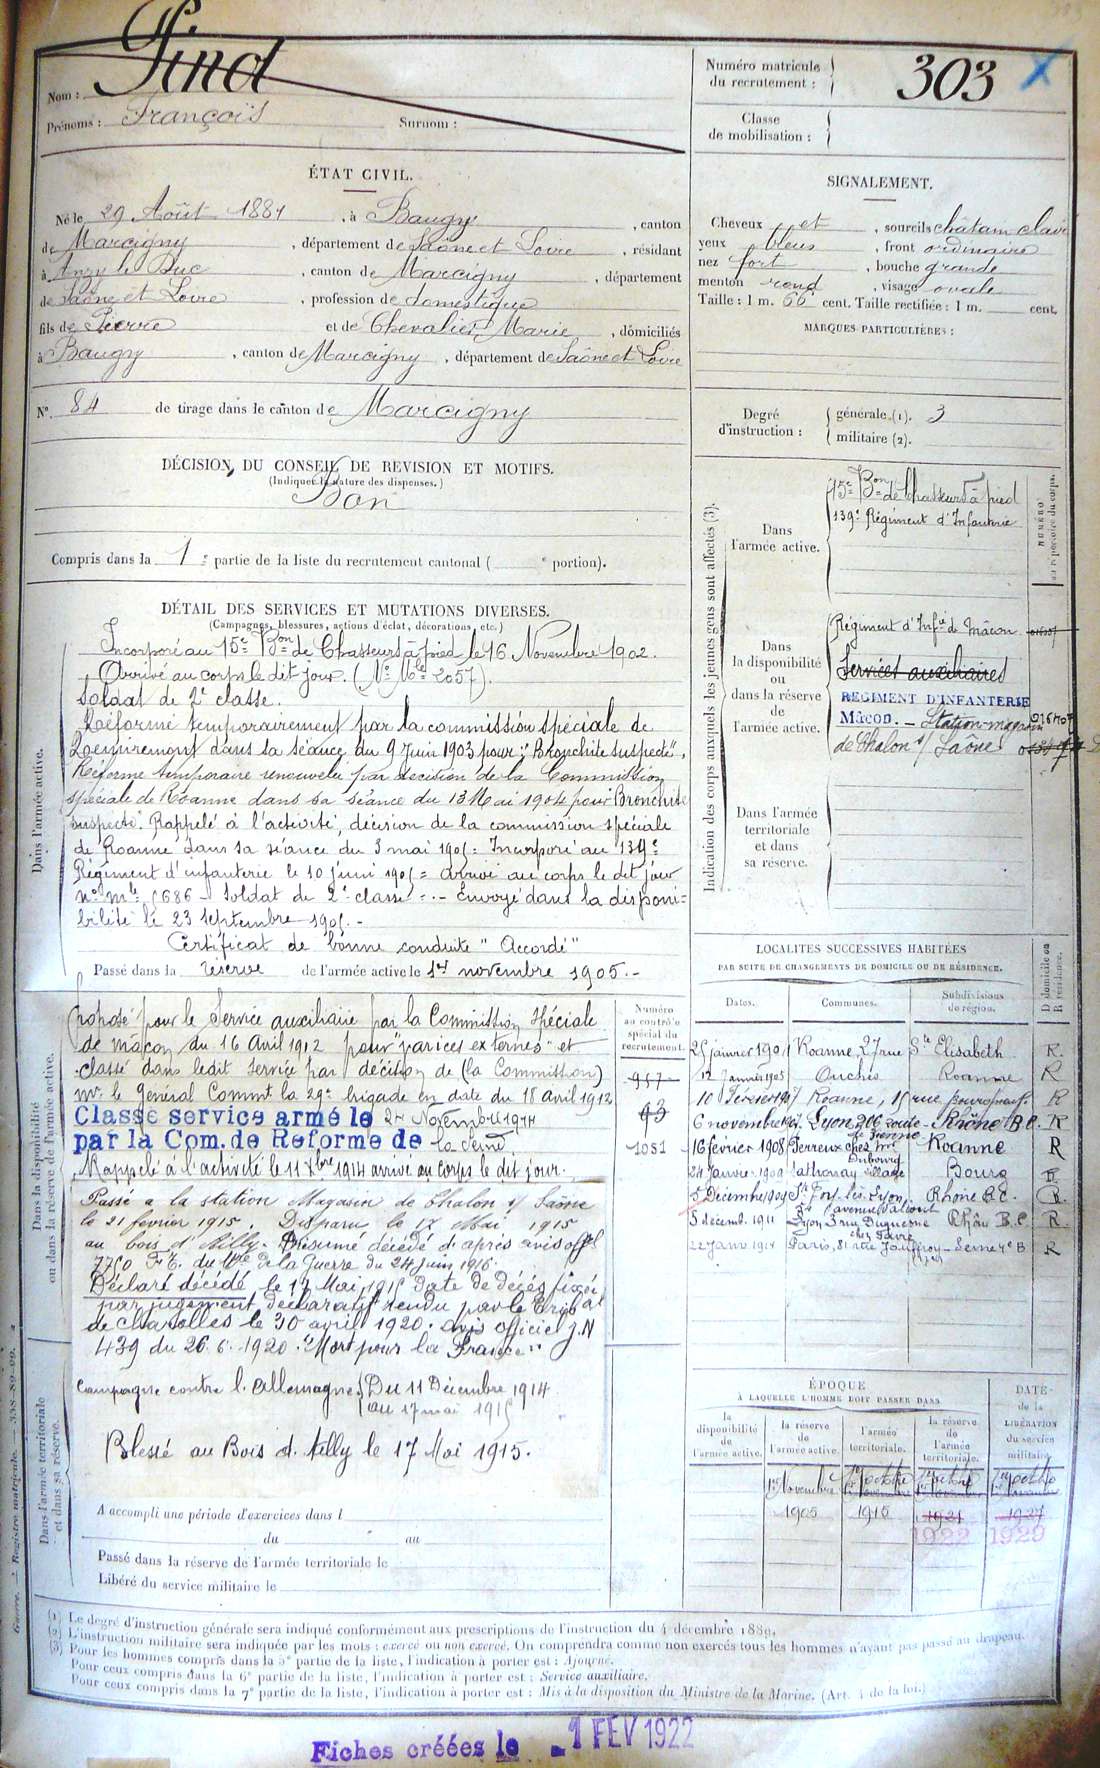 Nom : Pind
Prénoms : François Surnom :
Numéro matricule du recrutement : 303
Classe de mobilisation :
ÉTAT CIVIL.
Né le 29 Août 1881, à Baugy, canton
de Marcigny, département de Saône et Loire, résidant
à Anzy le Duc, canton de Marcigny, département
de Saône et Loire, profession de domestique
fils de Pierre et de Chevalier, Marie, domiciliés
à Baugy, canton de Marcigny, département de Saône et Loire
N° 84 de tirage dans le canton de Marcigny
SIGNALEMENT.
Cheveux et, sourcils châtain clair
yeux bleus, front ordinaire
nez fort, bouche grande
menton rond, visage ovale
Taille : 1 m. 66 cent. Taille rectifiée : 1 m. cent.
MARQUES PARTICULIÈRES :
Degré d'instruction : générale (1). 3
militaire (2).
DÉCISION DU CONSEIL DE REVISION ET MOTIFS.
(Indiquer la nature des dispenses.)
Bon
Compris dans la 1e partie de la liste du recrutement cantonal ( e portion).
DÉTAIL DES SERVICES ET MUTATIONS DIVERSES.
(Campagnes, blessures, actions d'éclat, décorations, etc.)
Dans l'armée active.
Incorporé au 15e Bon de Chasseurs à pied le 16 Novembre 1902.
Arrivé au corps le dit jour. (No Mle 2057).
Soldat de 2e classe.
Réformé temporairement par la commission spéciale de
dans sa séance du 9 Juin 1903 pour "Bronchite suspecte".
Réforme temporaire renouvelée par décision de la Commission
spéciale de Roanne dans sa séance du 13 Mai 1904 pour Bronchite
suspecte. Rappelé à l'activité, décision de la commission spéciale
de Roanne dans sa séance du 3 mai 1905. Incorporé au 139e
Régiment d'infanterie le 10 juin 1905 = arrivé au corps le dit jour
no mle 5686 - Soldat de 2e classe. - Envoyé dans la disponi-
bilité le 23 septembre 1905.-
Certificat de bonne conduite "Accordé"
Passé dans la réserve de l'armée active le 1er novembre 1905.-
Dans la disponibilité ou dans la réserve de l'armée active.
Proposé pour le Service auxiliaire par la Commission spéciale
de Mâcon du 16 Avril 1912 pour "varices externes" et
classé dans ledit service par décision de (la Commission)
Mr le Général Commt la 29e brigade en date du 18 avril 1912
Classé service armé le 24 Novembre 1914
par la Com. de Réforme de la Seine
Rappelé à l'activité le 11 Xbre 1914 arrivé au corps le dit jour.
Passé à la station Magasin de Chalon s/ Saône
le 21 février 1915. Disparu le 17 Mai 1915
au bois d'Ailly. Présumé décédé d'après avis offel
du Mtre de la Guerre du 24 juin 1916.
Déclaré décédé le 17 Mai 1915 Date de décès fixée
par jugement déclaratif rendu par le Tribal
de Charolles le 30 avril 1920. avis officiel J.N
439 du 26.6.1920. "Mort pour la France"
Campagne contre l'Allemagne (Du 11 Décembre 1914
au 17 mai 1915
Blessé au Bois d'Ailly le 17 Mai 1915.
Dans l'armée territoriale et dans sa réserve.
A accompli une période d'exercices dans l
du au
Passé dans la réserve de l'armée territoriale le
Libéré du service militaire le
Numéro au contrôle spécial du recrutement.
957
93
1051
Indication des corps auxquels les jeunes gens sont affectés (3).
NUMÉRO au répertoire du corps.
Dans l'armée active.
15e Bon de Chasseurs à pied
139e Régiment d'Infanterie
Dans la disponibilité ou dans la réserve de l'armée active.
Régiment d'Infie de Mâcon
Services auxiliaires
REGIMENT D'INFANTERIE
Mâcon. - Station-magasin
de Chalon s/ Saône
Dans l'armée territoriale et dans sa réserve.
LOCALITÉS SUCCESSIVES HABITÉES
PAR SUITE DE CHANGEMENTS DE DOMICILE OU DE RÉSIDENCE.
Dates. Communes. Subdivisions de région. D domicile ou R résidence.
25 janvier 1904 Roanne, 27 rue Ste Elisabeth R.
12 Janvier 1905 Ouches Roanne R
10 Février 1907 Roanne, 15 rue R
6 novembre 1907 Lyon 206 route de Vienne Rhône B.C. R
16 février 1908 Perreux chez Mr Dubourg Roanne R
24 Janvier 1909 village Bourg R
5 Décembre 1909 Ste Foy lès Lyon, Rhône B.C. R.
5 décemb. 1911 Lyon 3 rue Duguesne Rhône B.C. R.
22 Janv 1914 Paris, 81 rue Jouffroy Seine 4e B R
ÉPOQUE
À LAQUELLE L'HOMME DOIT PASSER DANS
la disponibilité de l'armée active. la réserve de l'armée active. l'armée territoriale. la réserve de l'armée territoriale. DATE de la LIBÉRATION du service militaire.
1er Novembre 1er octobre 1er octobre 1er octobre
1905 1915 1921 1927
1922 1929
(1) Le degré d'instruction générale sera indiqué conformément aux prescriptions de l'instruction du 4 décembre 1889.
(2) L'instruction militaire sera indiquée par les mots : exercé ou non exercé. On comprendra comme non exercés tous les hommes n'ayant pas passé au drapeau.
(3) Pour les hommes compris dans la 5e partie de la liste, l'indication à porter est : Ajourné.
Pour ceux compris dans la 6e partie de la liste, l'indication à porter est : Service auxiliaire.
Pour ceux compris dans la 7e partie de la liste, l'indication à porter est : Mis à la disposition du Ministre de la Marine. (Art. 4 de la loi.)
Fiches créées le 1 FEV 1922